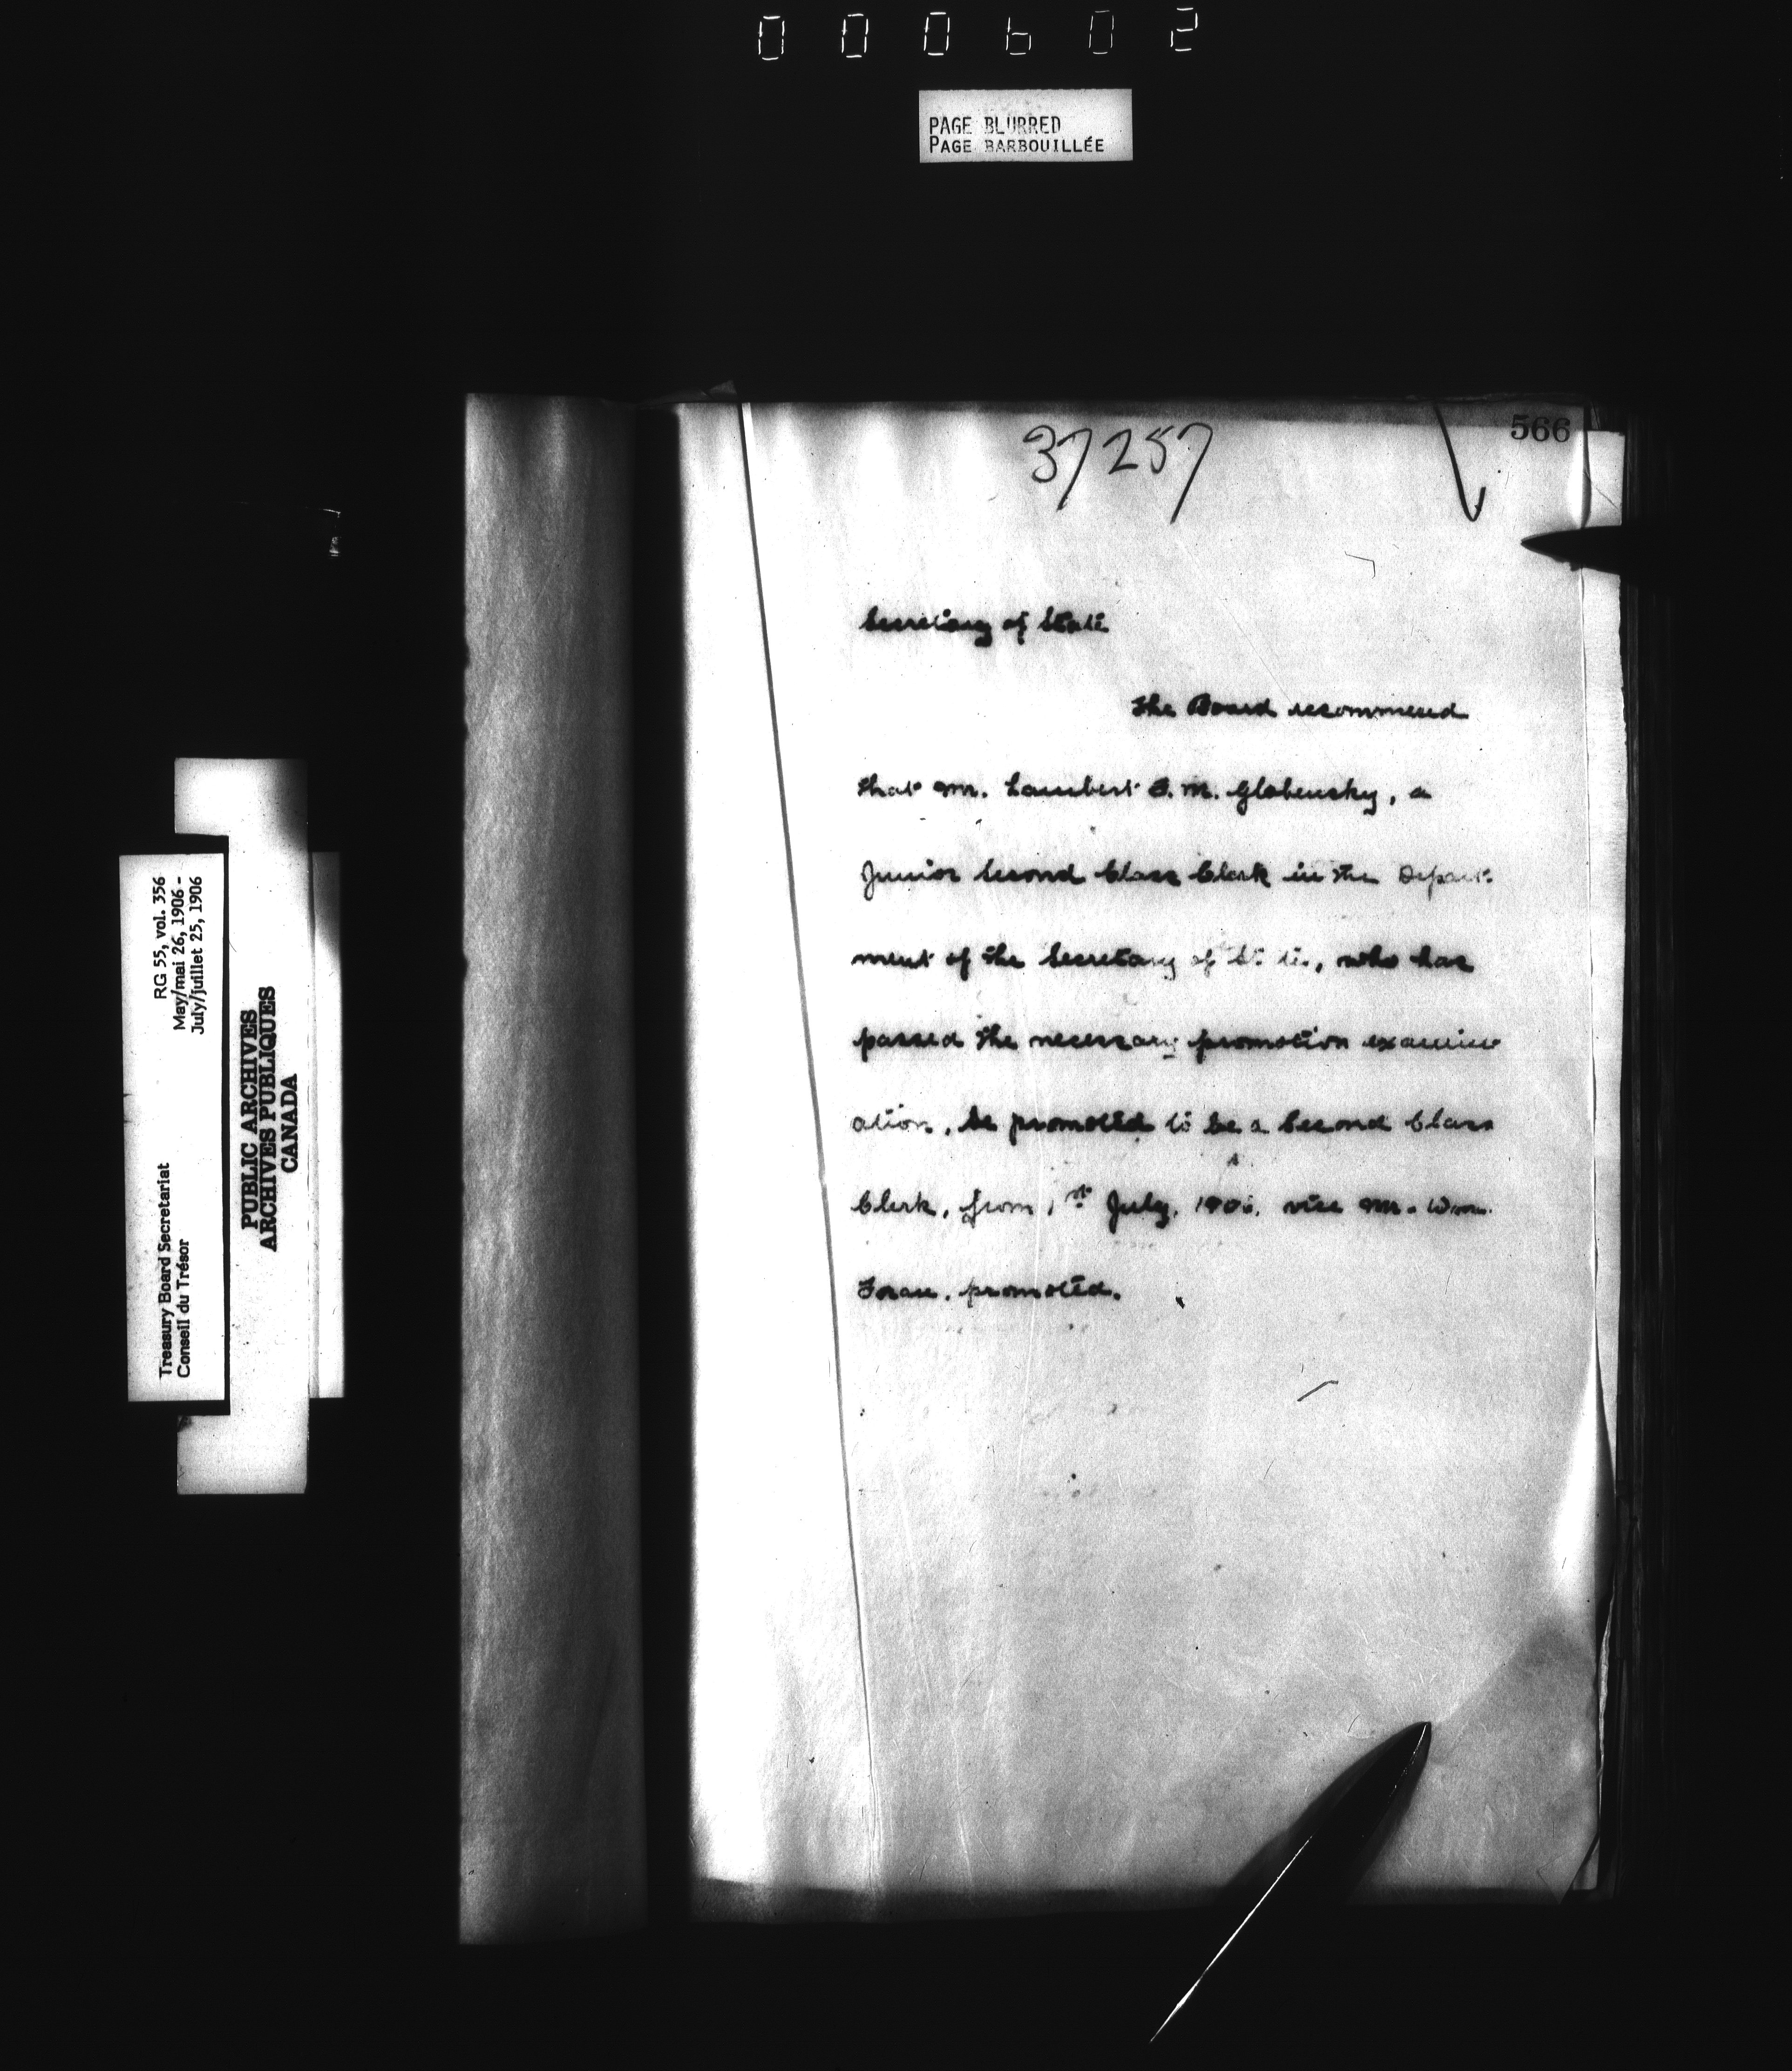 000602
PAGE BLURRED
PAGE BARBOUILLÉE
566
37257
Secretary of State
The Board recommend
that Mr. Lambert E. M. Globensky, a
Junior Second Class Clerk in the Depart-
ment of the Secretary of State, who has
passed the necessary promotion examin-
ation, be promoted to be a Second Class
Clerk, from 1st July, 1906, vice Mr. Wm.
Foran, promoted.
RG 55, vol. 356
May/mai 26, 1906 -
July/juillet 25, 1906
Treasury Board Secretariat
Conseil du Trésor
PUBLIC ARCHIVES
ARCHIVES PUBLIQUES
CANADA